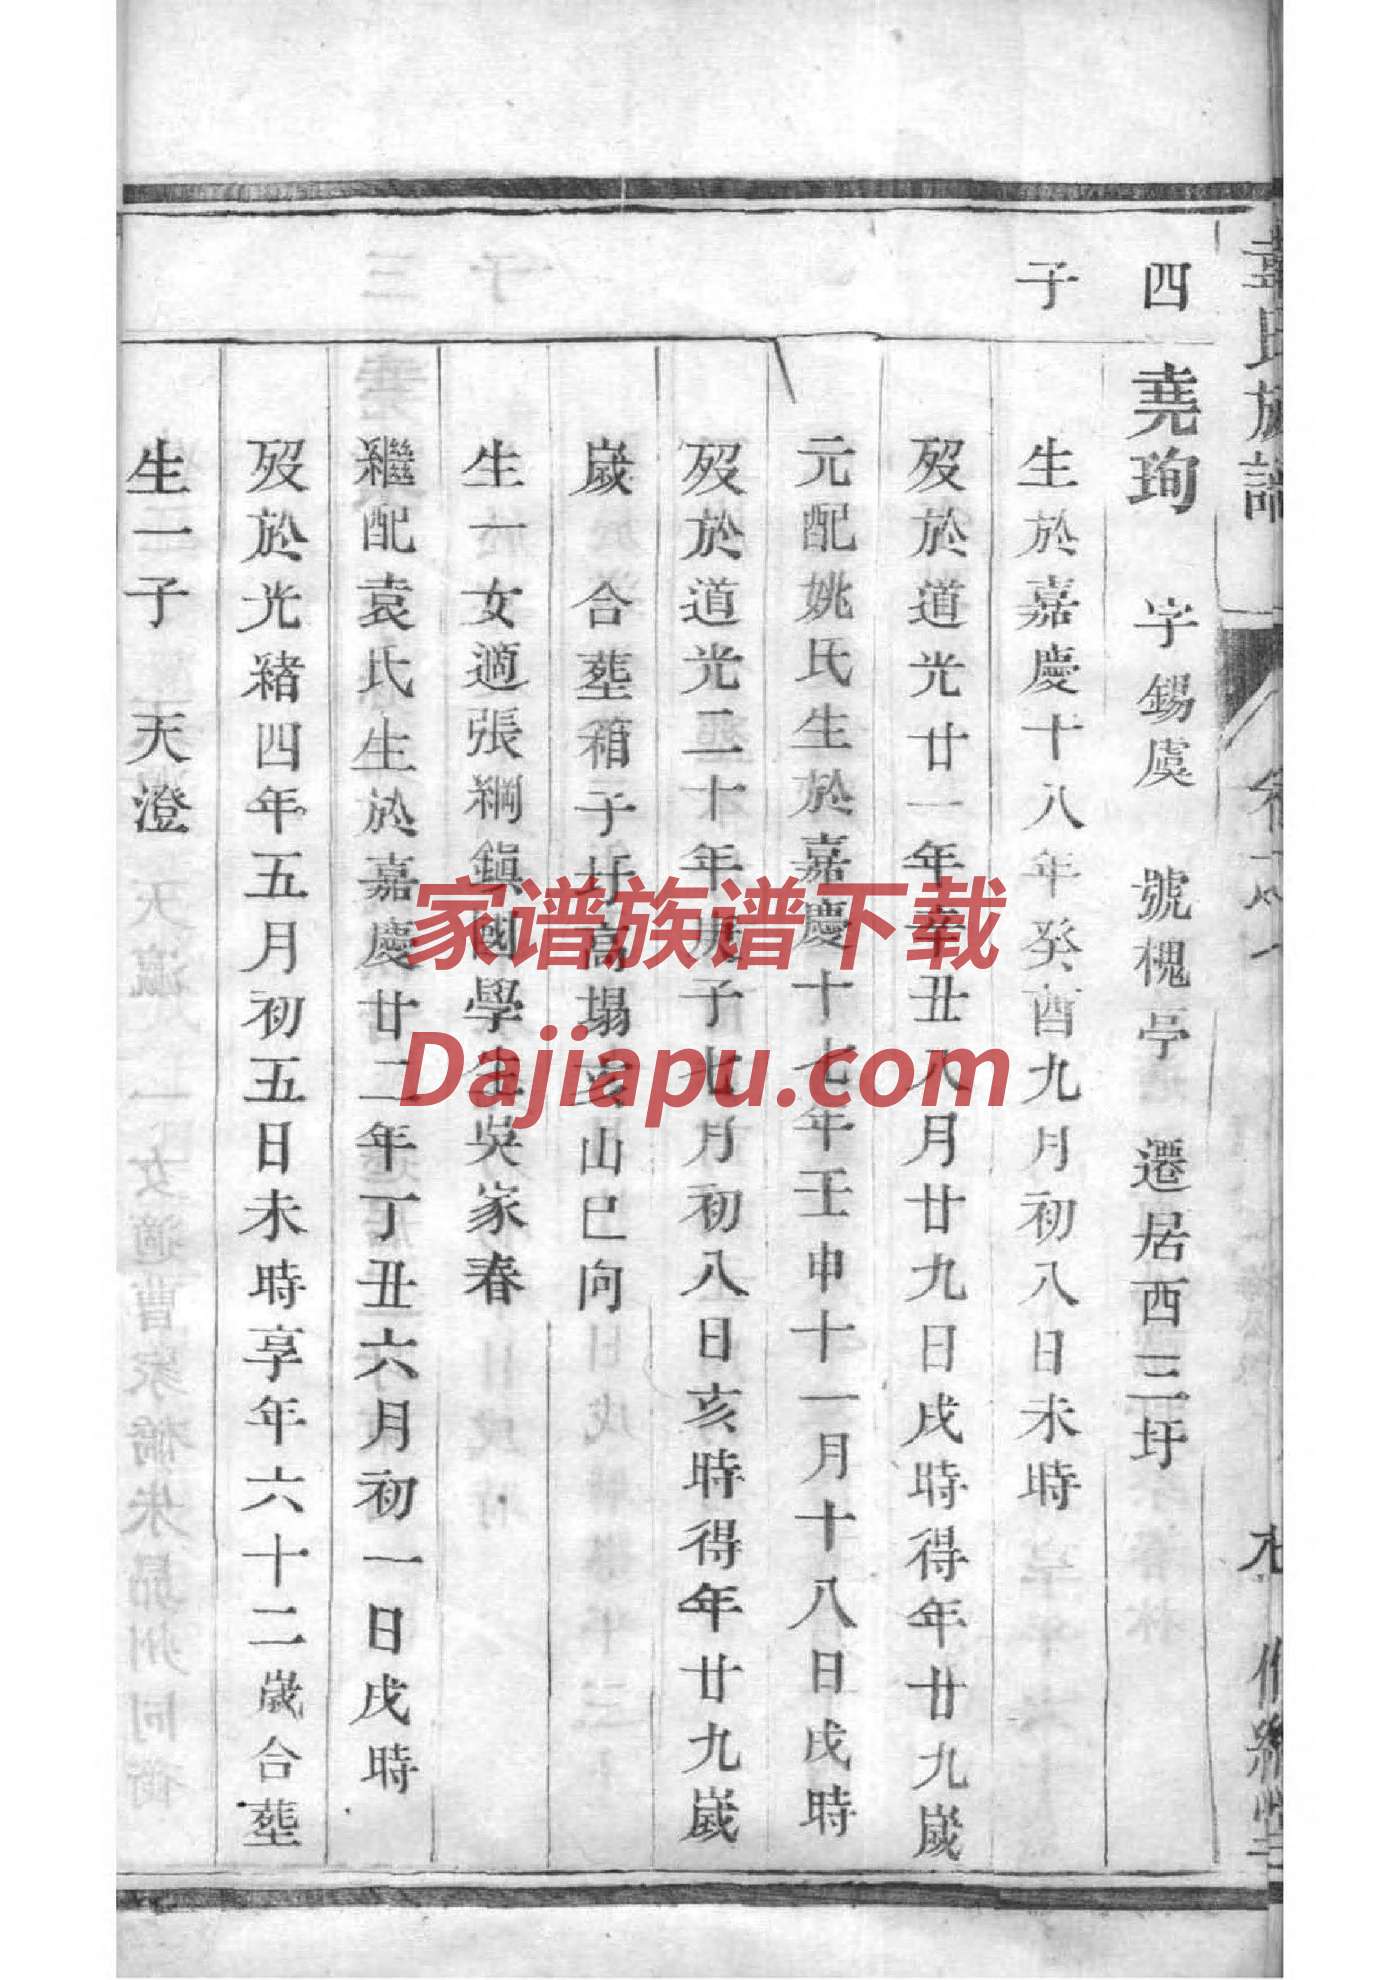 氏族譜
四 堯珣 字錫虞 號槐亭 遷居西三圩
子 生於嘉慶十八年癸酉九月初八日未時
歿於道光廿一年辛丑八月廿九日戌時得年廿九歲
元配姚氏生於嘉慶十七年壬申十一月十八日戌時
歿於道光二十年庚子七月初八日亥時得年廿九歲
歲 合塟箱子圩高塌亥山巳向
生一女適張綱鎮國學生吳家春
繼配袁氏生於嘉慶廿二年丁丑六月初一日戌時
歿於光緒四年五月初五日未時享年六十二歲合塟
生一子 天澄
家谱族谱下载
Dajiapu.com